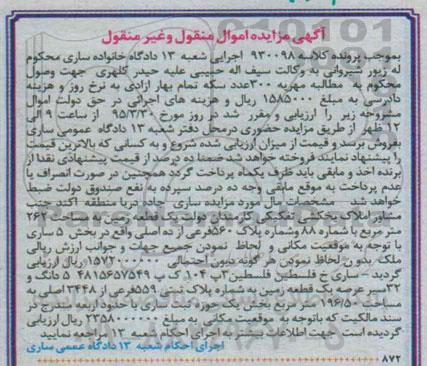 آگهی مزایده اموال منقول و غیر منقول
بموجب پرونده کلاسه ۹۳۰۰۹۸ اجرایی شعبه ۱۳ دادگاه خانواده ساری محکوم
له زیور شیروانی به وکالت سیف اله حبیبی علیه حیدر گلهری جهت وصول
محکوم به مطالبه مهریه ۳۰۰عدد سکه تمام بهار آزادی به نرخ روز و هزینه
دادرسی به مبلغ ۱۵۸۵۰۰۰ ریال و هزینه های اجرائی در حق دولت اموال
مشروحه زیر را ارزیابی و مقرر شد در روز مورخ ۹۵/۳/۳۰ از ساعت ۹ الی
۱۲ ظهر از طریق مزایده حضوری درمحل دفتر شعبه ۱۳ دادگاه عمومی ساری
بفروش برسد و قیمت از میزان ارزیابی شده شروع و به کسانی که بالاترین قیمت
را پیشنهاد نمایند فروخته خواهد شد ضمنا ده درصد از قیمت پیشنهادی نقدا از
برنده اخذ و مابقی باید ظرف یکماه پرداخت گردد همچنین در صورت انصراف یا
عدم پرداخت به موقع مابقی وجه ده درصد سپرده به نفع صندوق دولت ضبط
خواهد شد مشخصات مال مورد مزایده ساری جاده دریا منطقه اکند جنب
مشاور املاک بخکشی تفکیکی کارمندان دولت یک قطعه زمین به مساحت ۲۶۲
متر مربع با شماره ۸۸ وشماره پلاک ۵۶۰فرعی از ده اصلی واقع در بخش ۵ ساری
با توجه به موقعیت مکانی و لحاظ نمودن جمیع جهات و جوانب ارزش ریالی
ملک بدون لحاظ نمودن هر گونه دیون احتمالی ۱۵۷۲۰۰۰۰۰۰ریال ارزیابی
گردید ساری خ فلسطین فلسطین ۳پ ۱۰۴ ک پ ۴۸۱۵۶۵۷۵۴۹ ۵ دانگ و
۳۲سیر عرصه یک قطعه زمین به شماره پلاک ثبتی ۵۵۹فرعی از ۳۴۴۸ اصلی به
مساحت ۱۹۶/۵۰ متر مربع بخش یک حوزه ثبت ساری با حدود اربعه مندرج در
سند مالکیت که باتوجه به موقعیت مکانی به مبلغ ۲۳۵۸۰۰۰۰۰۰ ریال ارزیابی
گردیده است جهت اطلاعات بیشتر به اجرای احکام شعبه ۱۳ مراجعه نمایید
اجرای احکام شعبه ۱۳ دادگاه عممی ساری
۸۷۲